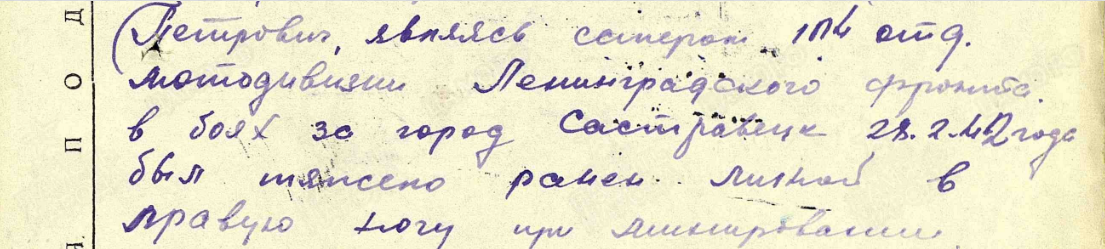 Петрович, являясь сапером 114 отд.
мотодивизии Ленинградского фронта
в боях за город Састравецк 28.2.42 года
был тяжело ранен миной в
правую ногу при минировании
П О Д